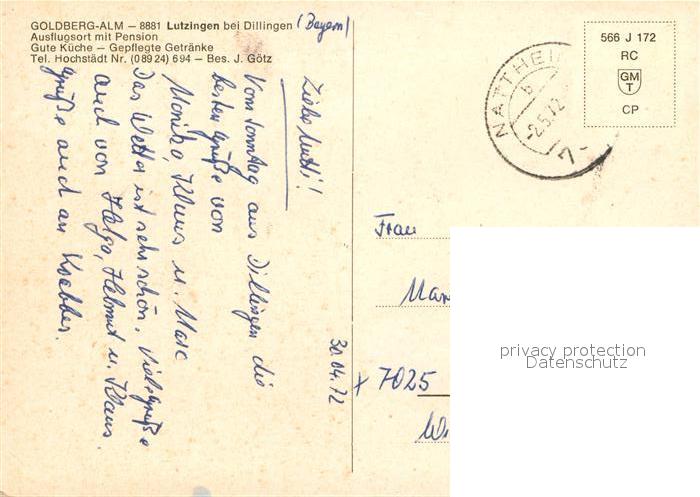 GOLDBERG-ALM — 8881 Lutzingen bei Dillingen (Bayern)
Ausflugsort mit Pension
Gute Küche — Gepflegte Getränke
Tel. Hochstädt Nr. (0 89 24) 6 94 — Bes. J. Götz
Liebe Mutti!
Vom Sonntag aus Dillingen die
besten Grüße von
Monika, Klaus u. Marc
Das Wetter ist sehr schön. Viele Grüße
auch von Helga, Helmut u. Klaus.
Grüße auch an
30.04.72
NATTHEIM
b
-2.5.72
7-
566 J 172
RC
GM
T
CP
Frau
+ 7025
privacy protection
Datenschutz